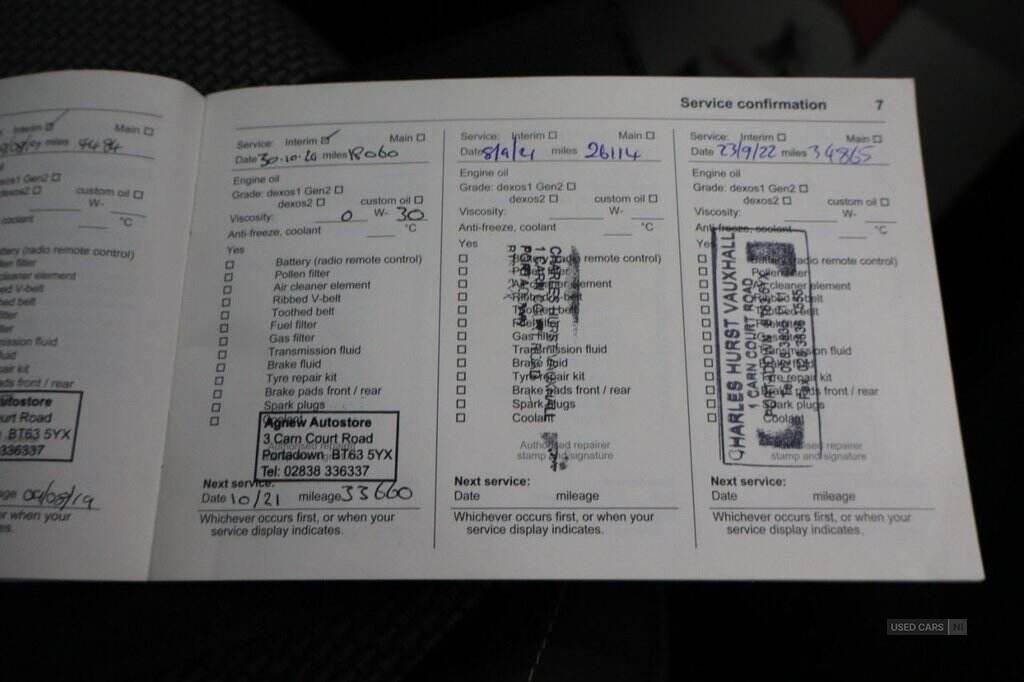 Interim ☑ Main ☐
miles 9484
dexos1 Gen2 ☐
dexos2 ☐ custom oil ☐
W-
coolant °C
(radio remote control)
filter
cleaner element
V-belt
belt
filter
filter
fluid
kit
pads front / rear
Autostore
Court Road
BT63 5YX
336337
09/08/19
or when your
Service confirmation 7
Service: Interim ☑ Main ☐
Date 30.10.20 miles 18060
Engine oil
Grade: dexos1 Gen2 ☐
dexos2 ☐ custom oil ☐
Viscosity: 0 W- 30
Anti-freeze, coolant °C
Yes
☐ Battery (radio remote control)
☐ Pollen filter
☐ Air cleaner element
☐ Ribbed V-belt
☐ Toothed belt
☐ Fuel filter
☐ Gas filter
☐ Transmission fluid
☐ Brake fluid
☐ Tyre repair kit
☐ Brake pads front / rear
☐ Spark plugs
☐ Coolant
Agnew Autostore
3 Carn Court Road
Portadown BT63 5YX
Tel: 02838 336337
Next service:
Date 10/21 mileage 33660
Whichever occurs first, or when your
service display indicates.
Service: Interim ☐ Main ☐
Date 8/9/21 miles 26114
Engine oil
Grade: dexos1 Gen2 ☐
dexos2 ☐ custom oil ☐
Viscosity: W-
Anti-freeze, coolant °C
Yes
☐ Battery (radio remote control)
☐ Pollen filter
☐ Air cleaner element
☐ Ribbed V-belt
☐ Toothed belt
☐ Fuel filter
☐ Gas filter
☐ Transmission fluid
☐ Brake fluid
☐ Tyre repair kit
☐ Brake pads front / rear
☐ Spark plugs
☐ Coolant
CHARLES HURST VAUXHALL
1 CARN COURT ROAD
Authorised repairer
stamp and signature
Next service:
Date mileage
Whichever occurs first, or when your
service display indicates.
Service: Interim ☐ Main ☐
Date 23/9/22 miles 34865
Engine oil
Grade: dexos1 Gen2 ☐
dexos2 ☐ custom oil ☐
Viscosity: W-
Anti-freeze, coolant °C
Yes
☐ Battery (radio remote control)
☐ Pollen filter
☐ Air cleaner element
☐ Ribbed V-belt
☐ Toothed belt
☐ Fuel filter
☐ Gas filter
☐ Transmission fluid
☐ Brake fluid
☐ Tyre repair kit
☐ Brake pads front / rear
☐ Spark plugs
☐ Coolant
CHARLES HURST VAUXHALL
1 CARN COURT ROAD
Authorised repairer
stamp and signature
Next service:
Date mileage
Whichever occurs first, or when your
service display indicates.
USED CARS NI